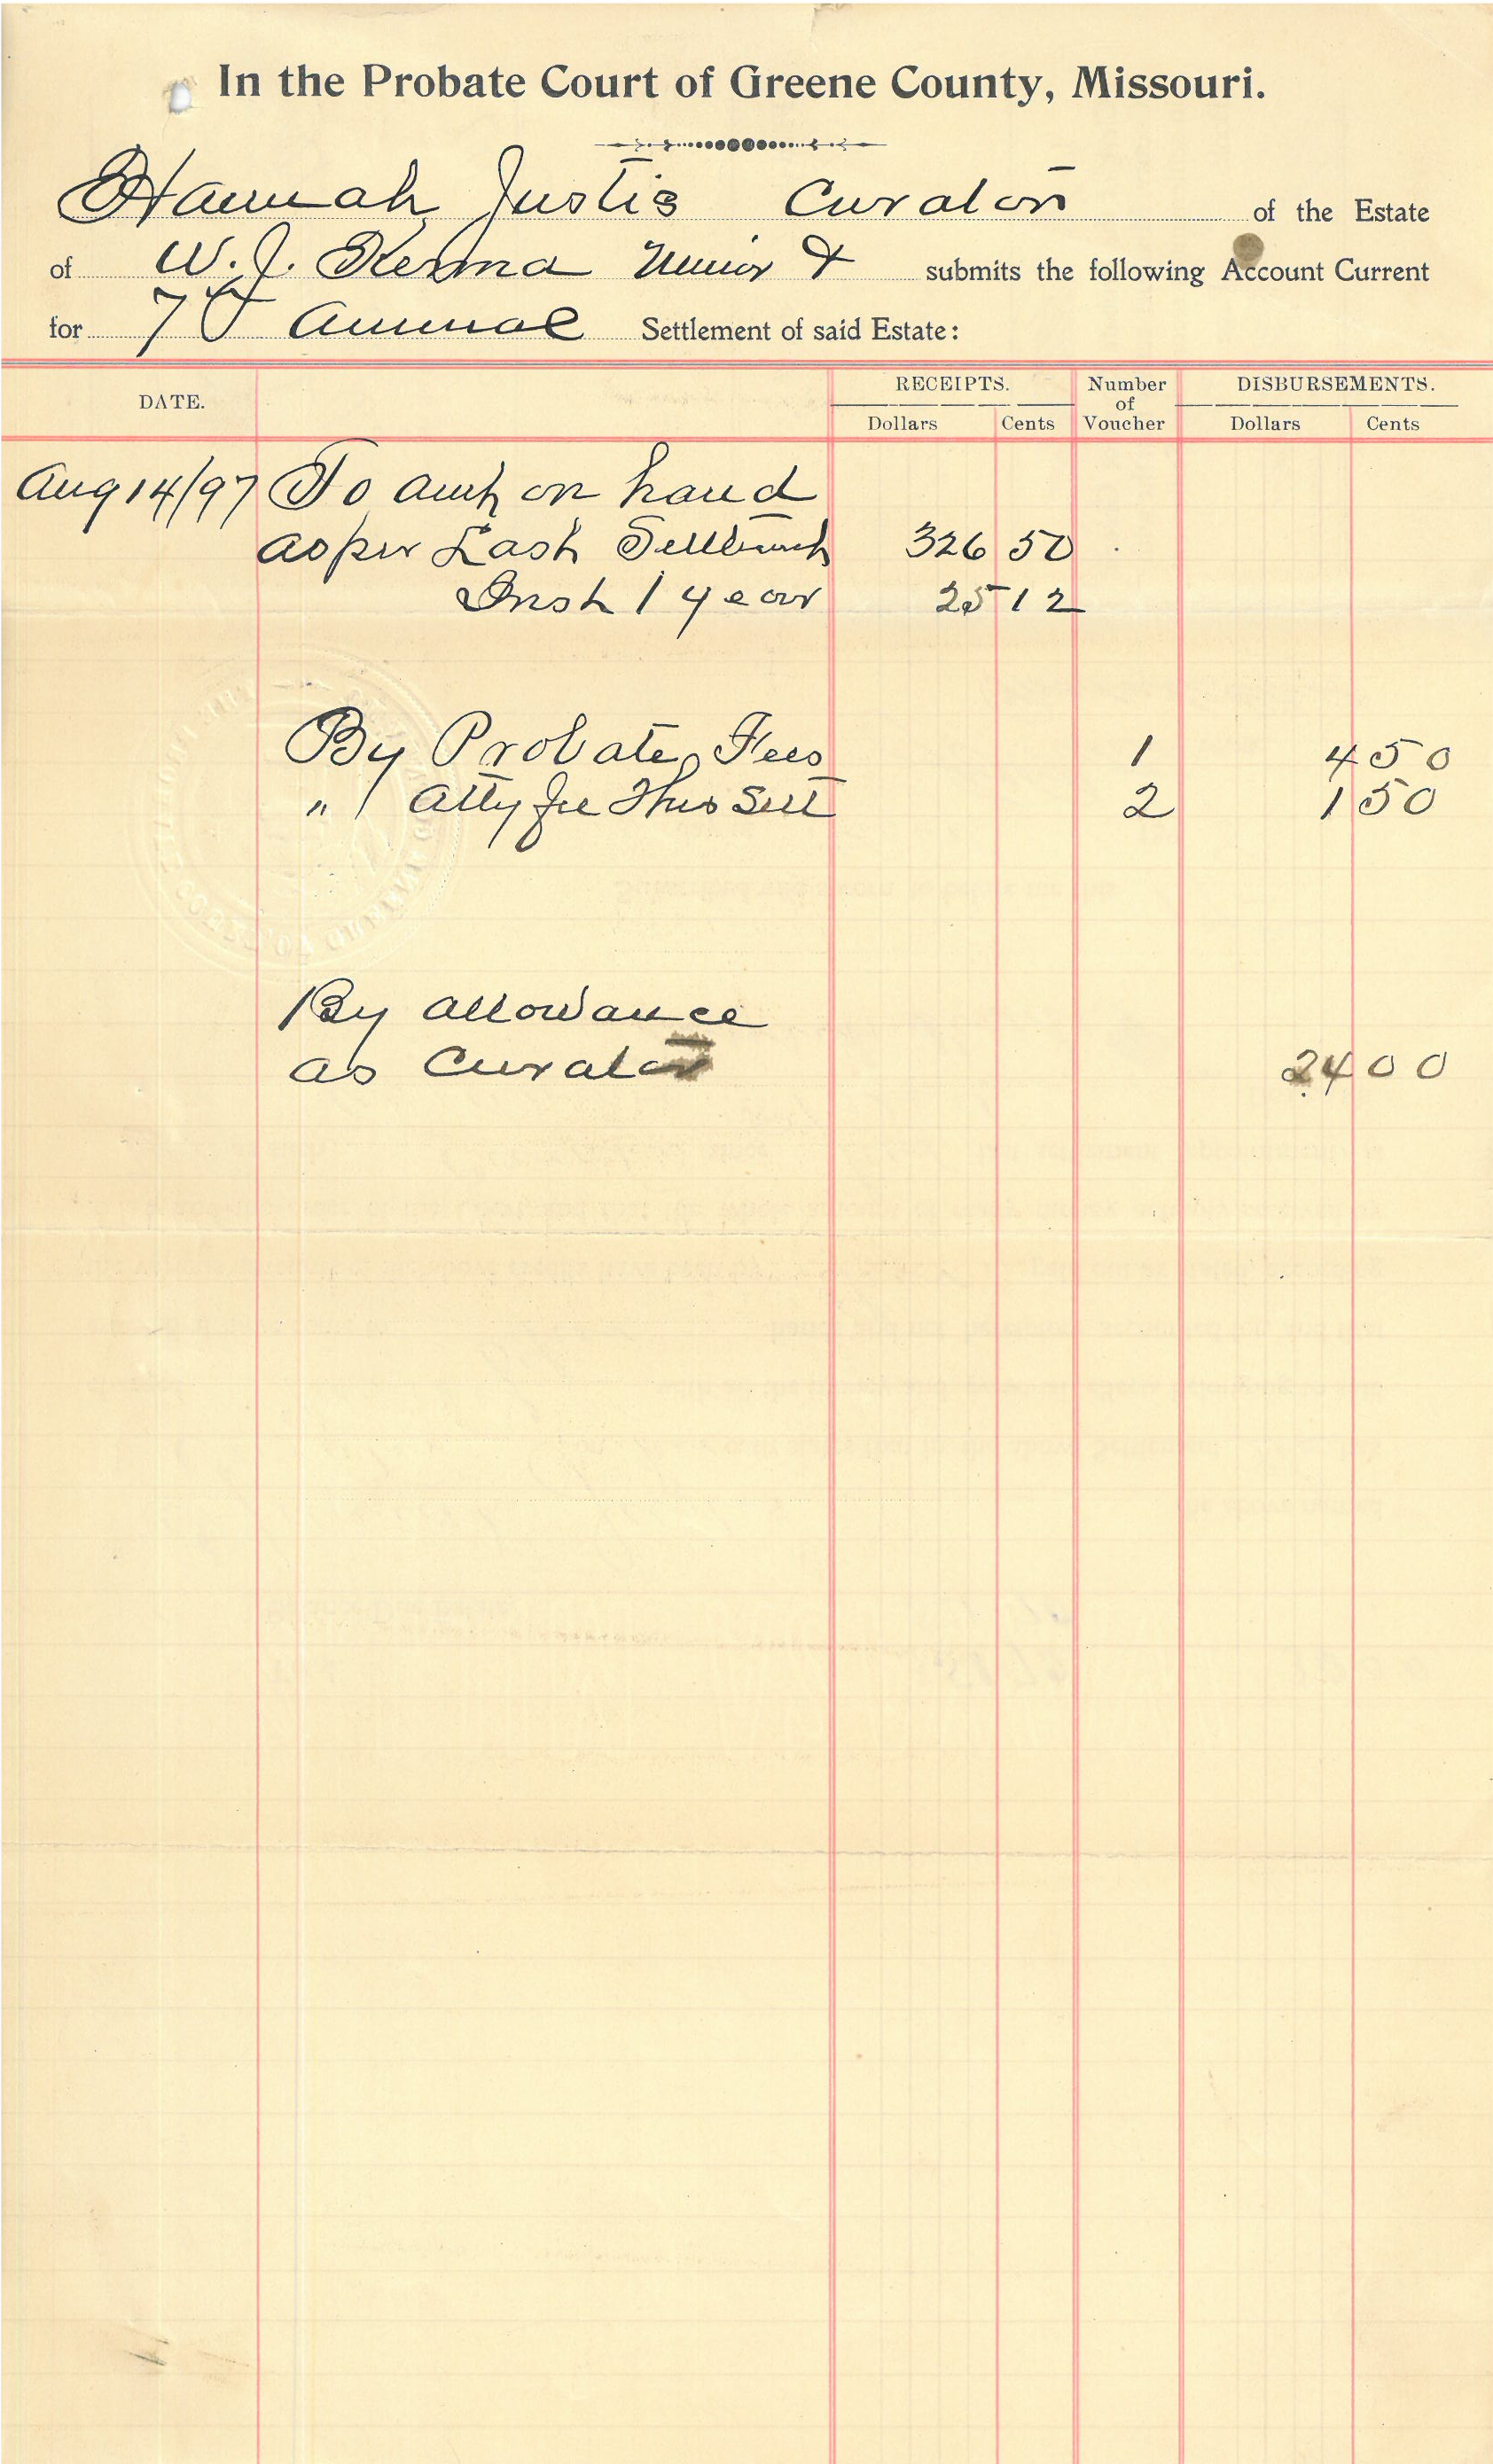 In the Probate Court of Greene County, Missouri.
Hannah Justis Curator of the Estate
of W. J. Kerma Minor & submits the following Account Current
for 7th Annual Settlement of said Estate:
DATE. RECEIPTS. Number of Voucher DISBURSEMENTS.
Dollars Cents Dollars Cents
Aug 14/97 To amt on hand
as per Last Settlement 326 50
Inst 1 year 25 12
By Probate Fees 1 4 50
" Atty fee This Sett 2 1 50
By allowance
as Curator 24 00